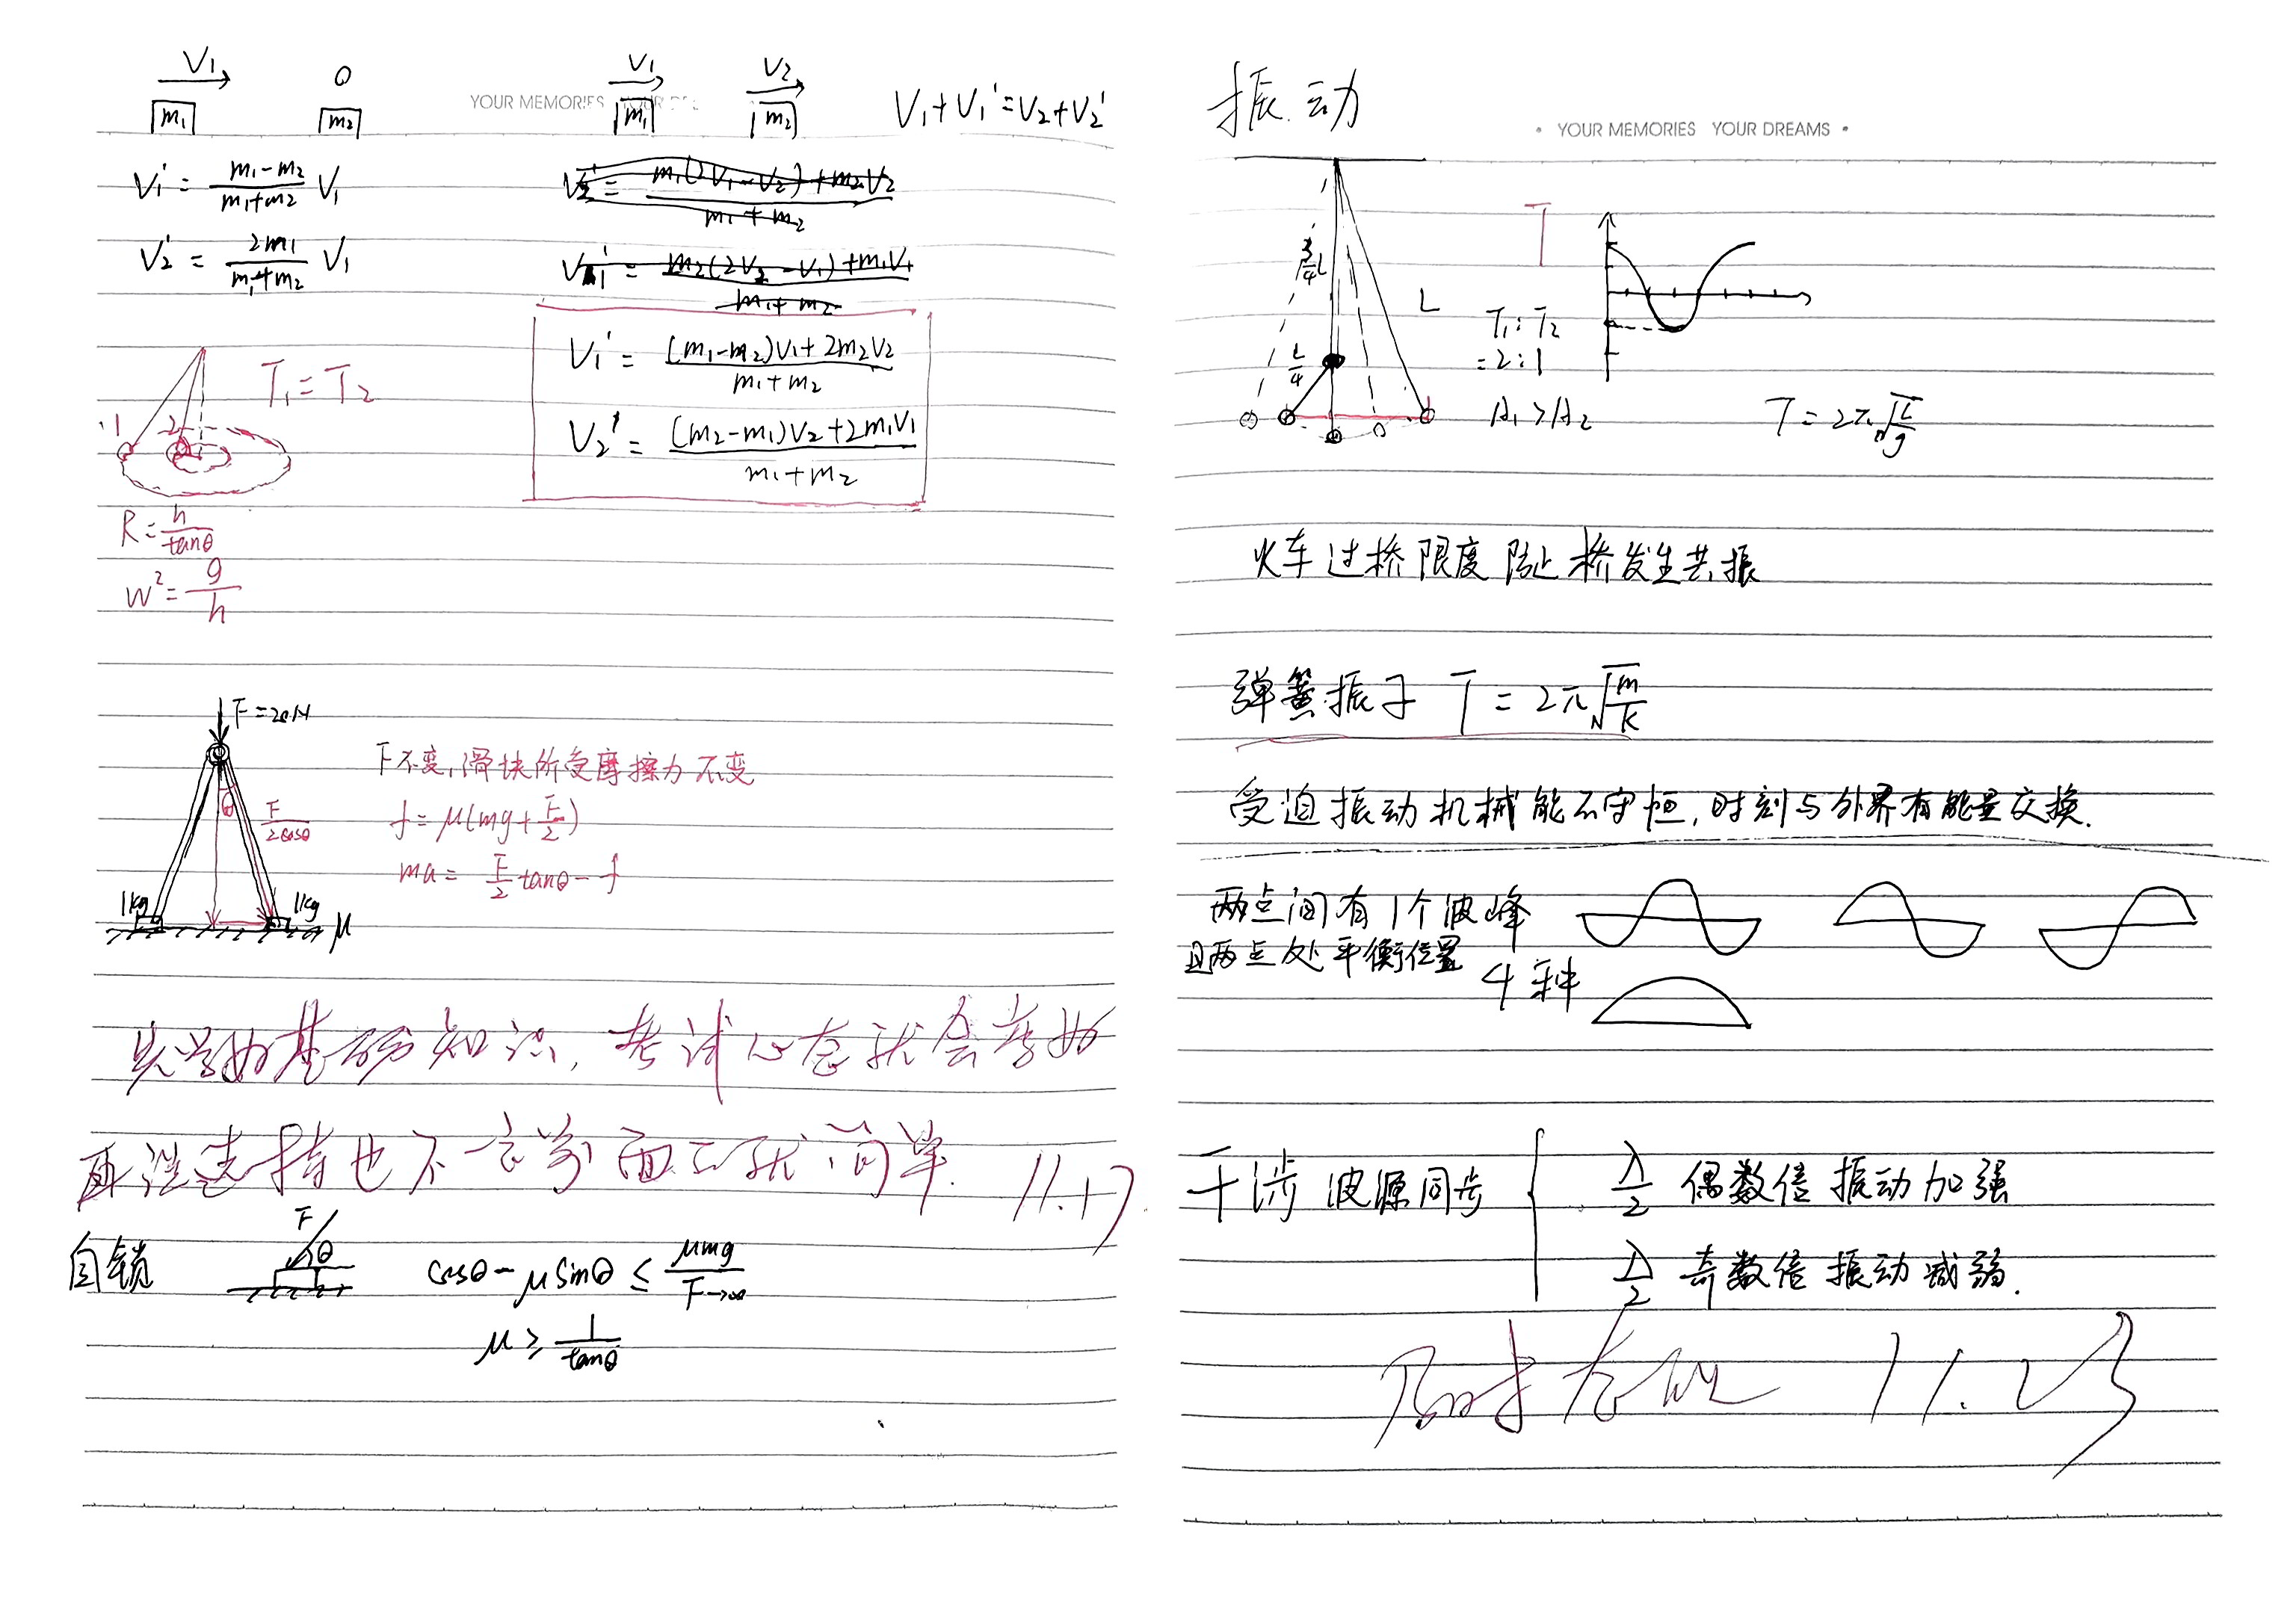 V₁ 0
m₁ m₂
V₁' = (m₁-m₂)/(m₁+m₂) V₁
V₂' = 2m₁/(m₁+m₂) V₁
YOUR MEMORIES
V₁ V₂
m₁ m₂
V₁+V₁'=V₂+V₂'
V₂' = (m₁(2V₁-V₂)+m₂V₂)/(m₁+m₂)
V₁' = (m₂(2V₂-V₁)+m₁V₁)/(m₁+m₂)
V₁' = ((m₁-m₂)V₁+2m₂V₂)/(m₁+m₂)
V₂' = ((m₂-m₁)V₂+2m₁V₁)/(m₁+m₂)
1 2
T₁=T₂
R=h/tanθ
W²=g/h
F=20N
θ
F/2cosθ
1kg 1kg μ
F不变,滑块所受摩擦力不变
f=μ(mg+F/2)
ma=F/2 tanθ-f
先学好基础知识,考试心态就会考好
11.17
自锁
F
θ
cosθ-μsinθ ≤ μmg/F→∞
μ ≥ 1/tanθ
振动
YOUR MEMORIES YOUR DREAMS
3/4L
L/4
L
T
T₁:T₂
=2:1
A₁>A₂
T=2π√(L/g)
火车过桥限度 防止桥发生共振
弹簧振子 T=2π√(m/k)
受迫振动机械能不守恒,时刻与外界有能量交换.
两点间有1个波峰
且两点处平衡位置
4种
干涉 波源同步
λ/2 偶数倍 振动加强
λ/2 奇数倍 振动减弱.
11.23